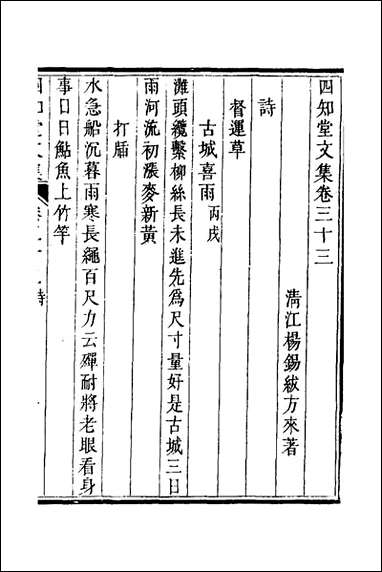 四知堂文集卷三十三
清江楊錫紱方來著
詩
督運草
古城喜雨丙戌
灘頭纜繫柳絲長未進先爲尺寸量好是古城三日
雨河流初漲麥新黃
打㧪
水急船沉暮雨寒長繩百尺力云殫耐將老眼看身
事日日鮎魚上竹竿